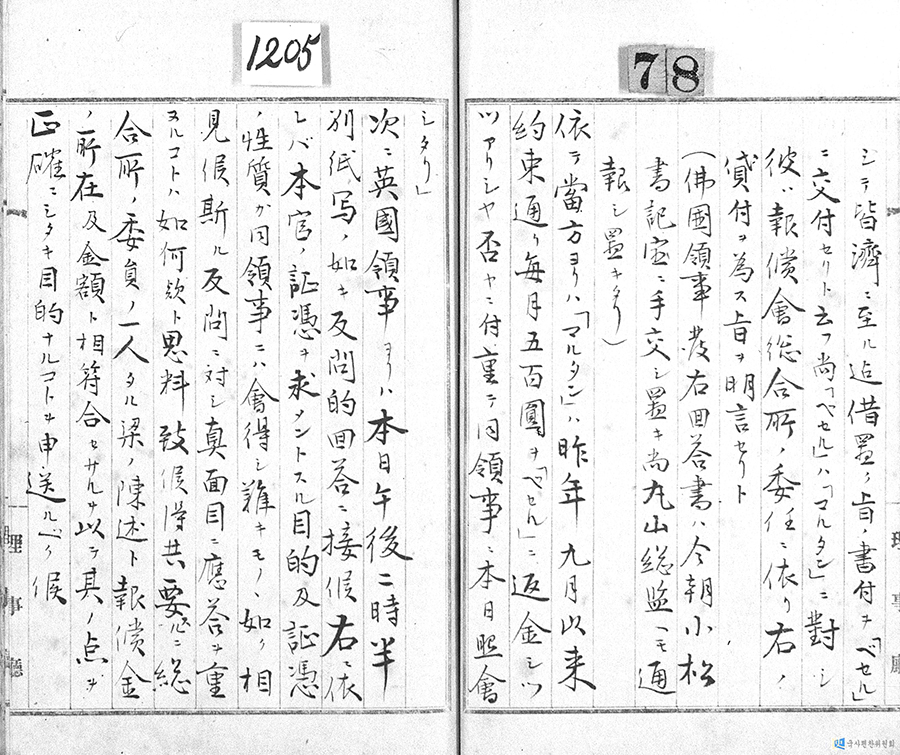 78
シテ皆済ニ至ル迄借置ノ旨ノ書付ヲ「ベセル」
ニ交付セリト云フ尚「ベセル」ハ「マルタン」ニ對シ
彼ハ報償會総合所ノ委任ニ依リ右ノ
貸付ヲ為ス旨ヲ明言セリト
(佛國領事發右回答書ハ今朝小松
書記官ニ手交シ置キ尚丸山総監ヘモ通
報シ置キタリ)
依テ當方ヨリハ「マルタン」ハ昨年九月以来
約束通リ毎月五百圓ヲ「ベセル」ニ返金シツ
ツアリシヤ否ヤニ付重テ同領事ニ本日照會
理事廳
1205
シタリ」
次ニ英國領事ヨリハ本日午後二時半
別紙写ノ如キ反問的回答ニ接候右ニ依
レバ本官ノ証憑ヲ求メントスル目的及証憑
ノ性質カ同領事ニハ會得シ難キモノヽ如ク相
見候斯ル反問ニ対シ真面目ニ應答ヲ重
ヌルコトハ如何歟ト思料致候得共要スルニ総
合所ノ委員ノ一人タル梁ノ陳述ト報償金
ノ所在及金額ト相符合セサルヲ以テ其ノ点ヲ
正確ニシタキ目的ナルコトヲ申送ルベク候
理事廳
국사편찬위원회